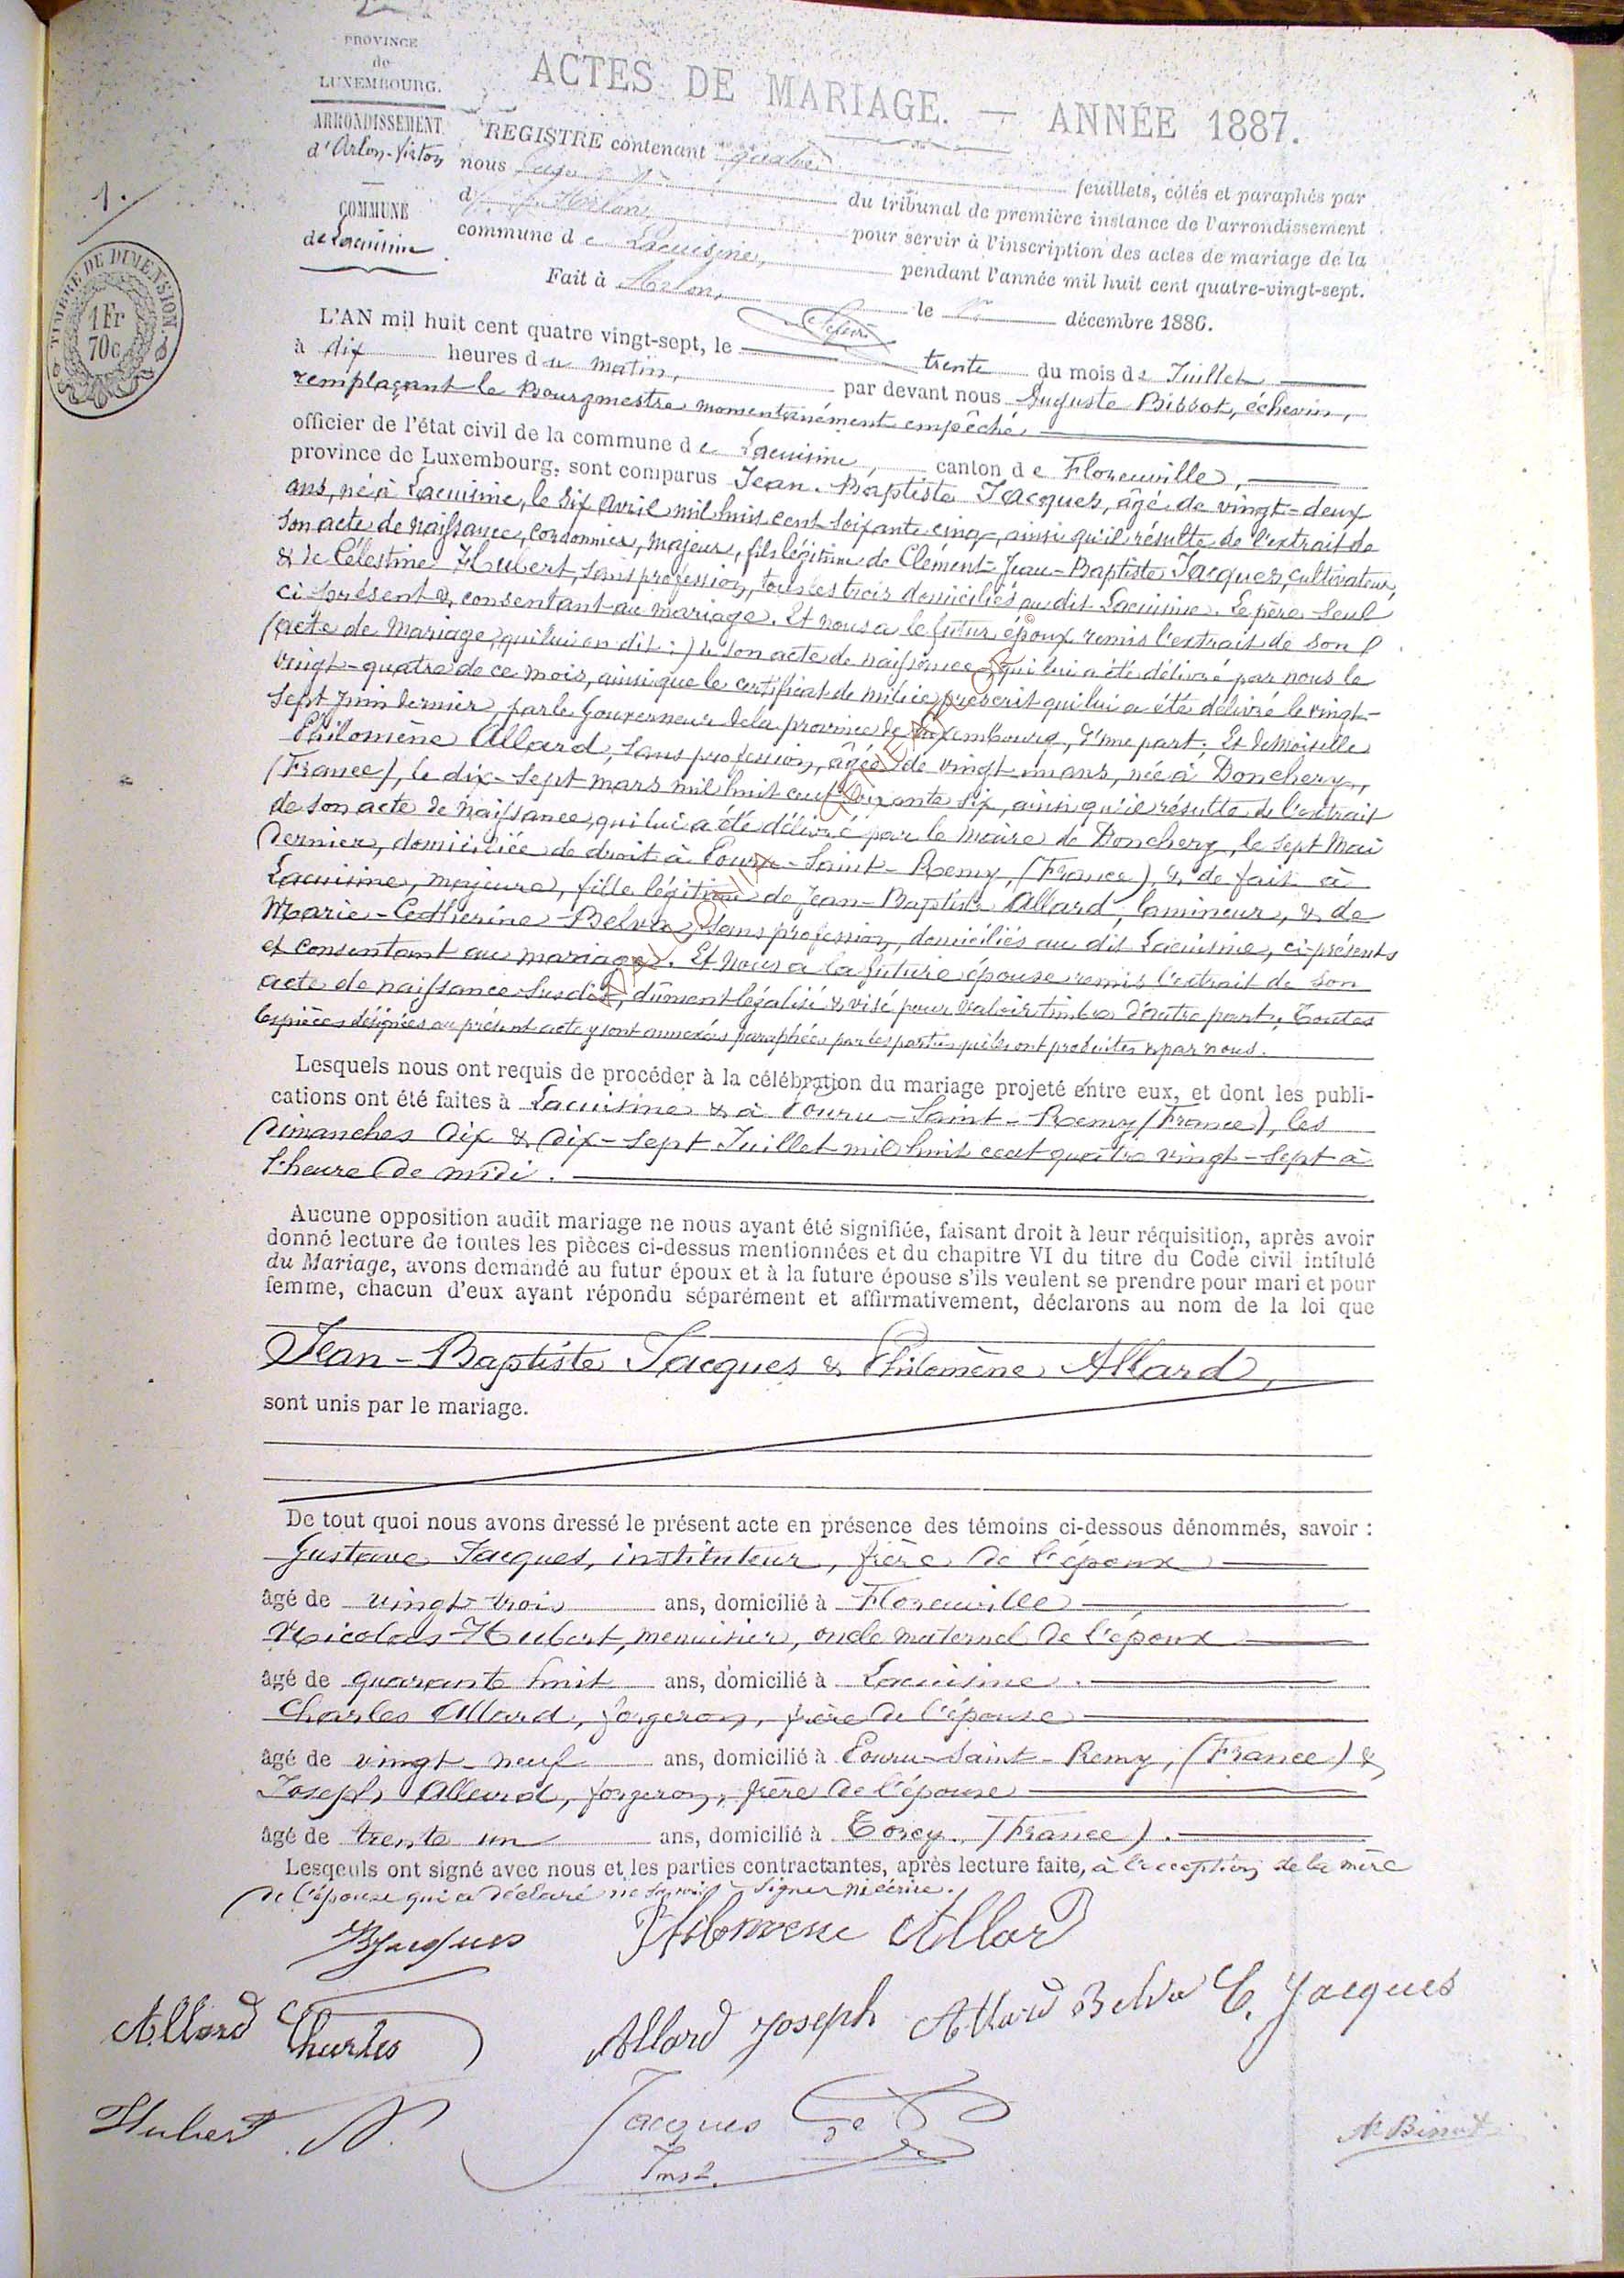 PROVINCE
de
LUXEMBOURG.
ARRONDISSEMENT
d'Arlon-Virton
COMMUNE
de Lacuisine
1.
TIMBRE DE DIMENSION.
1 Fr
70c
ACTES DE MARIAGE. — ANNÉE 1887.
REGISTRE contenant quatre feuillets, côtés et paraphés par
nous Juge du tribunal de première instance de l'arrondissement
d'Arlon, pour servir à l'inscription des actes de mariage de la
commune de Lacuisine, pendant l'année mil huit cent quatre-vingt-sept.
Fait à Arlon, le décembre 1886.
L'AN mil huit cent quatre vingt-sept, le trente du mois de Juillet
à dix heures du matin, par devant nous Auguste Bissot, échevin,
remplaçant le Bourgmestre momentanément empêché
officier de l'état civil de la commune de Lacuisine, canton de Florenville,
province de Luxembourg, sont comparus Jean-Baptiste Jacques, âgé de vingt-deux
ans, né à Lacuisine, le six avril mil huit cent soixante cinq, ainsi qu'il résulte de l'extrait de
son acte de naissance, cordonnier, majeur, fils légitime de Clément-Jean-Baptiste Jacques, cultivateur,
& de Célestine Hubert, sans profession, tous les trois domiciliés au dit Lacuisine. Le père seul
ci-présent & consentant au mariage. Et nous a le futur époux remis l'extrait de son
(acte de Mariage, qui lui en dit :) & son acte de naissance qui lui a été délivré par nous le
vingt-quatre de ce mois, ainsi que le certificat de milice prescrit qui lui a été délivré le vingt-
sept juin dernier par le Gouverneur de la province de Luxembourg, d'une part. Et demoiselle
Philomène Allard, sans profession, âgée de vingt un ans, née à Donchery,
(France), le dix-sept mars mil huit cent soixante six, ainsi qu'il résulte de l'extrait
de son acte de naissance, qui lui a été délivré par le Maire de Donchery, le sept Mai
dernier, domiciliée de droit à Pouru-Saint-Remy, (France) & de fait à
Lacuisine, majeure, fille légitime de Jean-Baptiste Allard, lamineur, & de
Marie-Catherine Belva, sans profession, domiciliés au dit Lacuisine, ci-présents
et consentant au mariage. Et nous a la future épouse remis l'extrait de son
acte de naissance susdit, dûment légalisé & visé pour valoir timbre d'autre part. Toutes
les pièces désignées au présent acte y sont annexées paraphées par les parties qui les ont produites & par nous.
Lesquels nous ont requis de procéder à la célébration du mariage projeté entre eux, et dont les publi-
cations ont été faites à Lacuisine & à Pouru-Saint-Remy (France), les
dimanches dix & dix-sept Juillet mil huit cent quatre vingt-sept à
l'heure de midi.
Aucune opposition audit mariage ne nous ayant été signifiée, faisant droit à leur réquisition, après avoir
donné lecture de toutes les pièces ci-dessus mentionnées et du chapitre VI du titre du Code civil intitulé
du Mariage, avons demandé au futur époux et à la future épouse s'ils veulent se prendre pour mari et pour
femme, chacun d'eux ayant répondu séparément et affirmativement, déclarons au nom de la loi que
Jean-Baptiste Jacques & Philomène Allard,
sont unis par le mariage.
De tout quoi nous avons dressé le présent acte en présence des témoins ci-dessous dénommés, savoir :
Gustave Jacques, instituteur, frère de l'époux
âgé de vingt-trois ans, domicilié à Florenville
Nicolas Hubert, menuisier, oncle maternel de l'époux
âgé de quarante huit ans, domicilié à Lacuisine.
Charles Allard, forgeron, frère de l'épouse
âgé de vingt-neuf ans, domicilié à Pouru-Saint-Remy, (France) &
Joseph Allard, forgeron, frère de l'épouse
âgé de trente un ans, domicilié à Torcy. (France).
Lesqeuls ont signé avec nous et les parties contractantes, après lecture faite, à l'exception de la mère
de l'épouse qui a déclaré ne savoir signer ni écrire.
JBJacques Philomene Allard
Allard Charles Allard Joseph Allard Belva C. Jacques
Hubert N. Jacques G
Inst.
A. Bissot